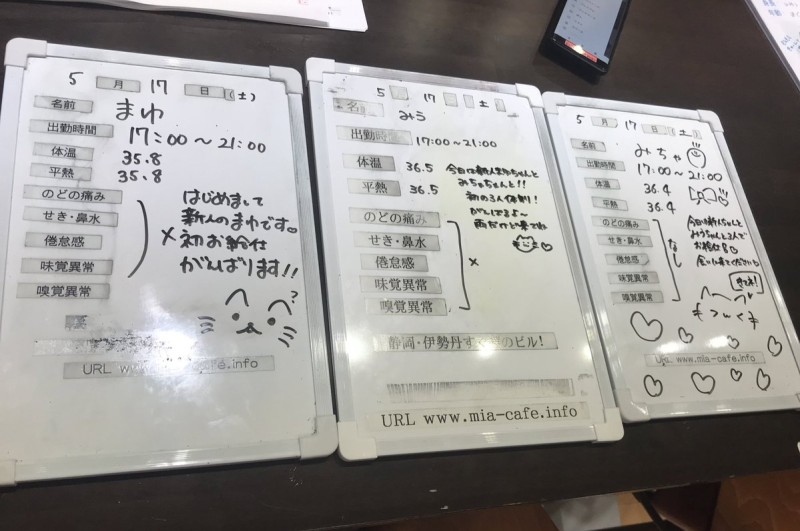 5 月 17 日 (土)
名前 まゆ
出勤時間 17:00〜21:00
体温 35.8
平熱 35.8
のどの痛み
せき・鼻水
倦怠感
味覚異常
嗅覚異常
×
はじめまして
新人のまゆです。
初お給仕
がんばります!!
URL www.mia-cafe.info
5 17 土
名 みう
出勤時間 17:00〜21:00
体温 36.5
平熱 36.5
のどの痛み
せき・鼻水
倦怠感
味覚異常
嗅覚異常
×
みちゃちゃんと!!
初の3人体制!
雨だけど来てね
静岡・伊勢丹す のビル!
URL www.mia-cafe.info
5 月 17 日 (土)
名前 みちゃ
出勤時間 17:00〜21:00
体温 36.4
平熱 36.4
のどの痛み
せき・鼻水
倦怠感
味覚異常
嗅覚異常
なし
みうちゃんと3人で
お給仕
URL www.mia-cafe.info